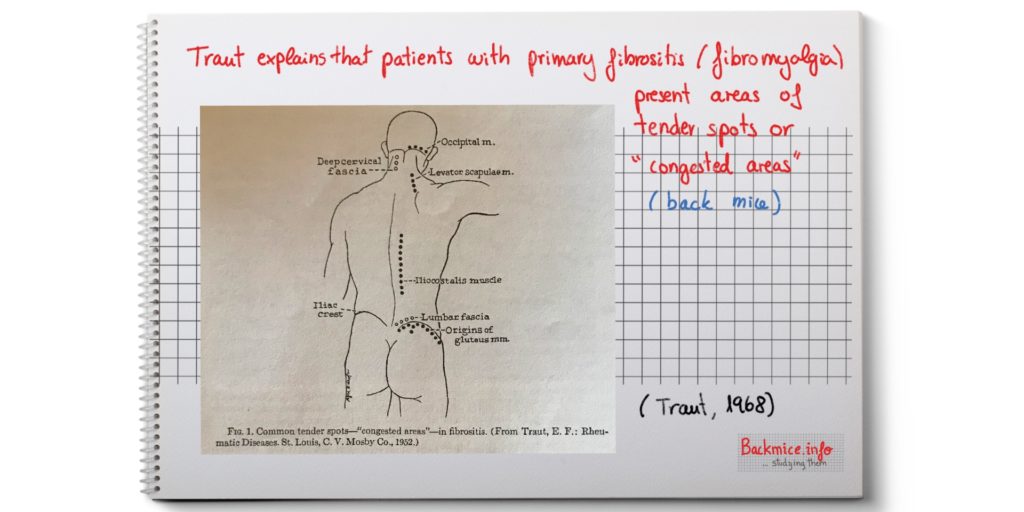 Traut explains that patients with primary fibrositis (fibromyalgia)
present areas of
tender spots or
"congested areas"
(back mice)
Occipital m.
Deep cervical
fascia
Levator scapulae m.
Iliocostalis muscle
Iliac
crest
Lumbar fascia
Origins of
gluteus mm.
FIG. 1. Common tender spots—"congested areas"—in fibrositis. (From Traut, E. F.: Rheu-
matic Diseases. St. Louis, C. V. Mosby Co., 1952.)
(Traut, 1968)
Backmice.info
... studying them